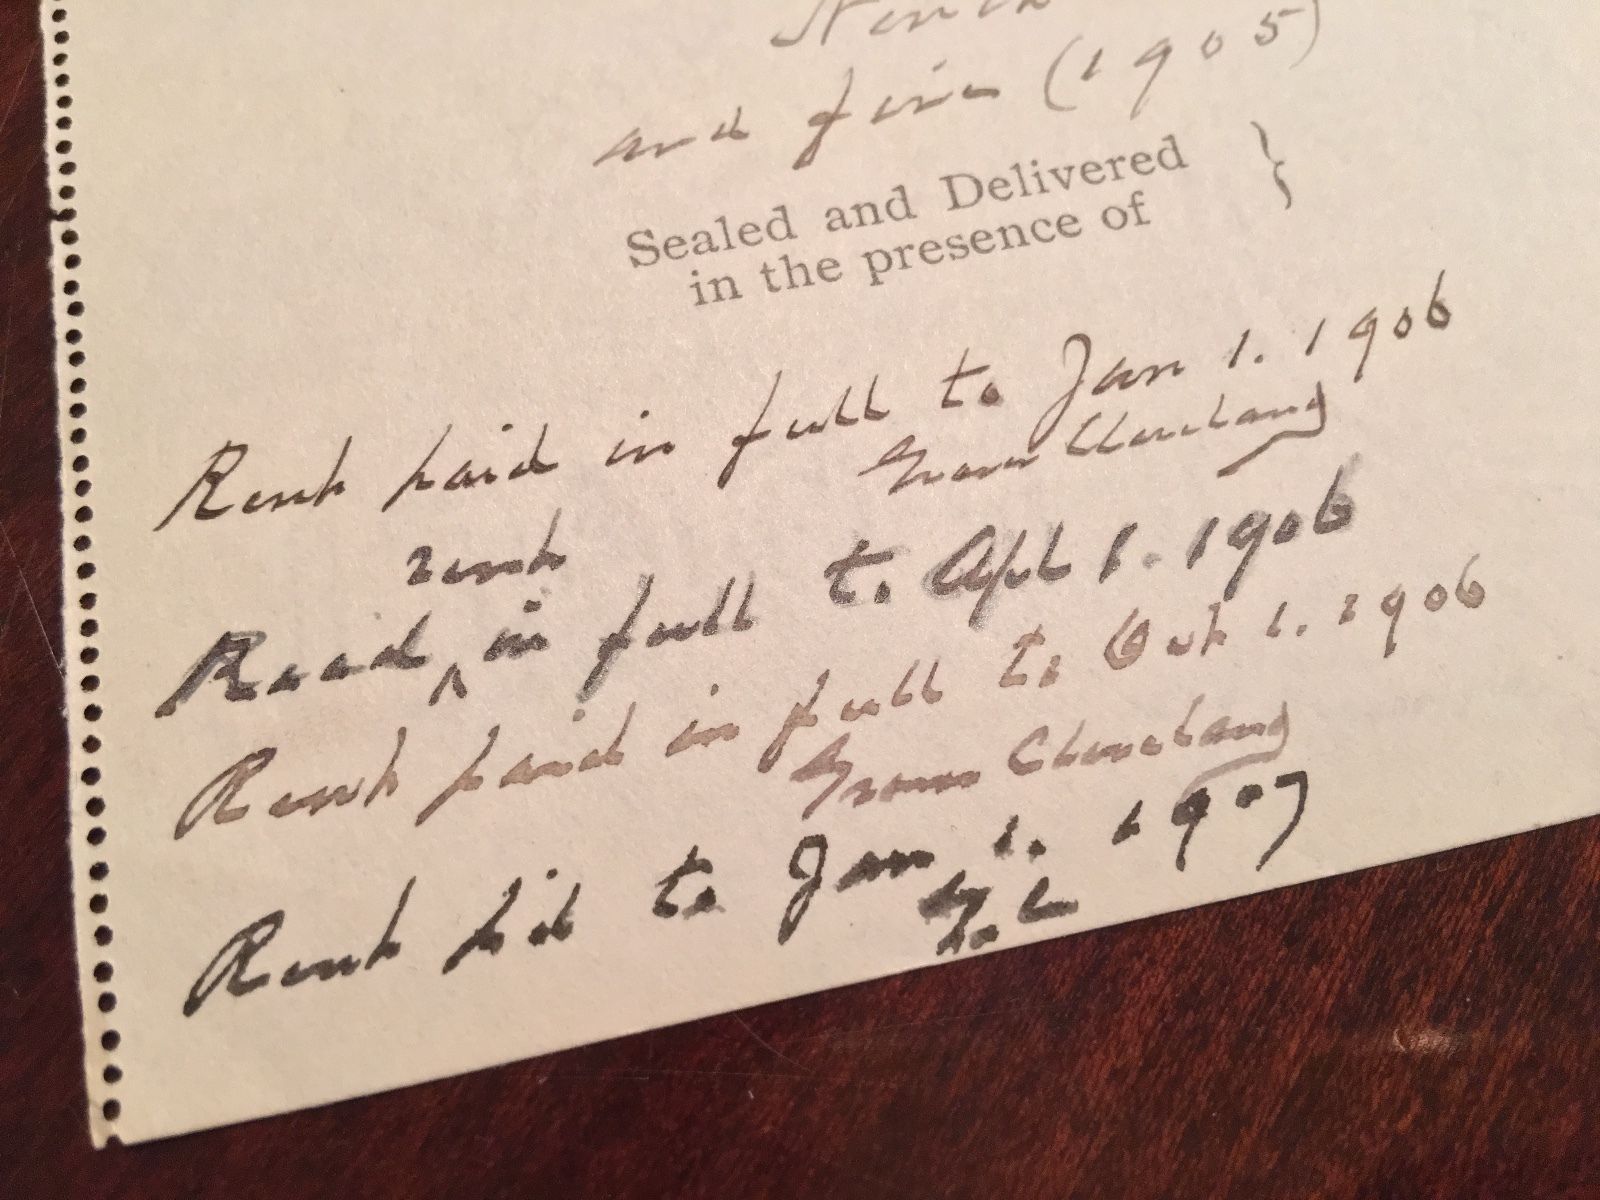 and five (1905)
Sealed and Delivered }
in the presence of
Rent paid in full to Jan 1. 1906
Grover Cleveland
rent
Recd ^ in full to Apl 1. 1906
Rent paid in full to Oct 1. 1906
Grover Cleveland
Rent pd to Jan 1. 1907
G. C.